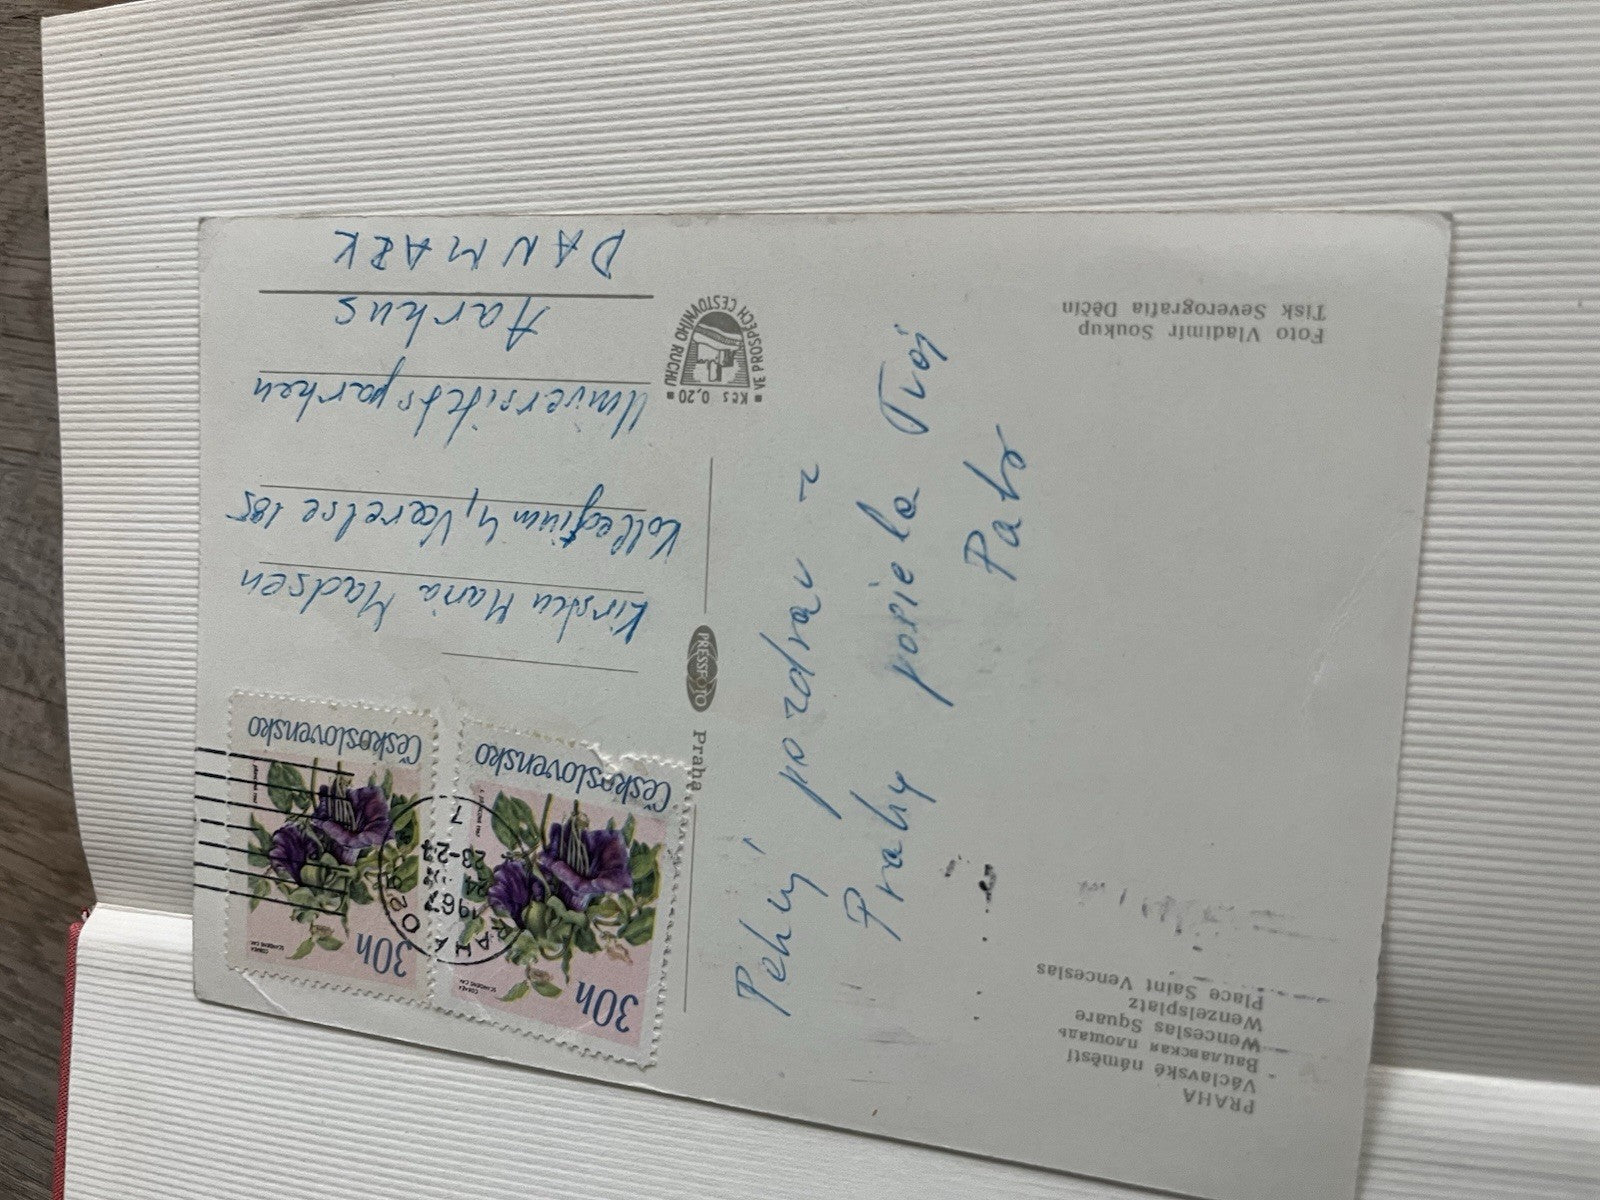 PRAHA
Václavské náměstí
Вацлавская площадь
Wenceslas Square
Wenzelsplatz
Place Saint Venceslas
Pekný pozdrav z
Prahy posiela Tvoj
Palo
Foto Vladimír Soukup
Tisk Severografia Děčín
PRESSFOTO Praha
Kčs 0,20
VE PROSPĚCH CESTOVNÍHO RUCHU
Československo
30h
COBAEA
SCANDENS CAV
Československo
30h
COBAEA
SCANDENS CAV
PRAHA 025
1967
24
23-24
7
Kirsten Maria Madsen
Kollegium 4, Værelse 185
Universitetsparken
Aarhus
DANMARK